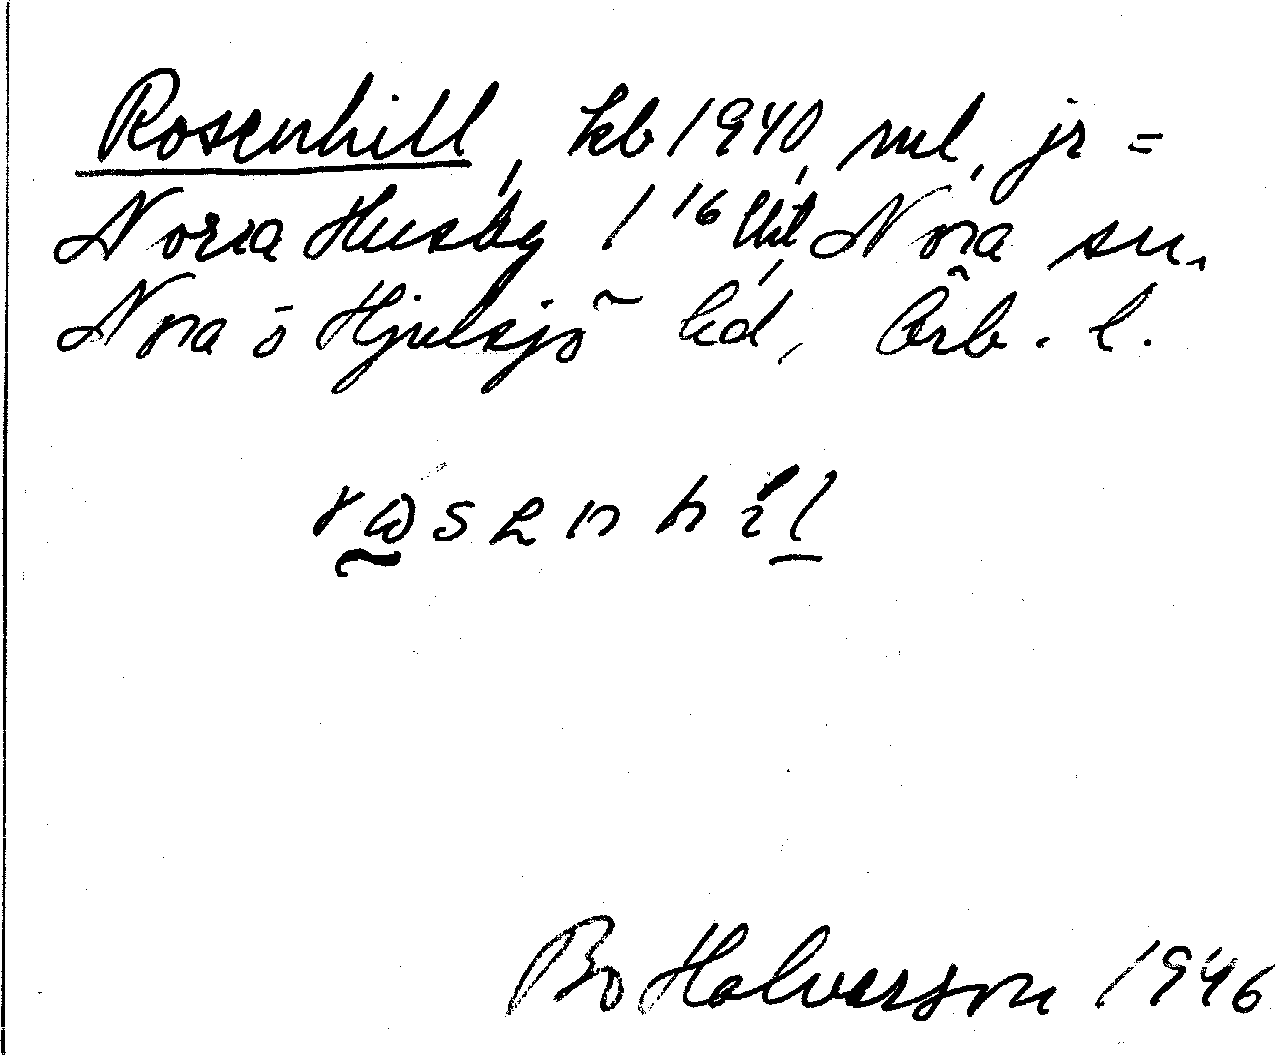 Rosenhill, kb 1940, ml, jr =
Norra Husby 1 16 Utl, Nora sn.
Nora o Hjulsjö hd, Örb. l.
rωsεnhil
Bo Halverson 1946